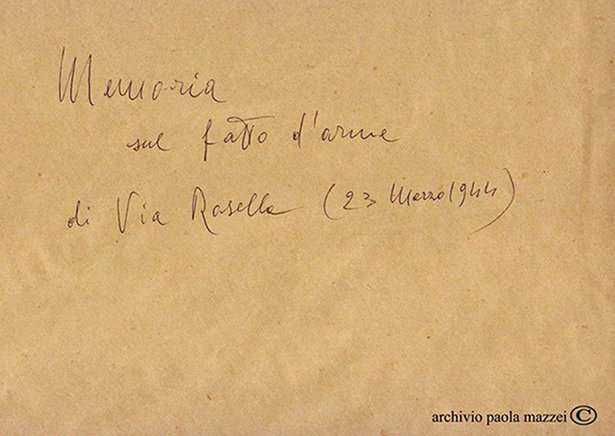 Memoria
sul fatto d'arme
di Via Rasella (23 Marzo 1944)
archivio paola mazzei ©